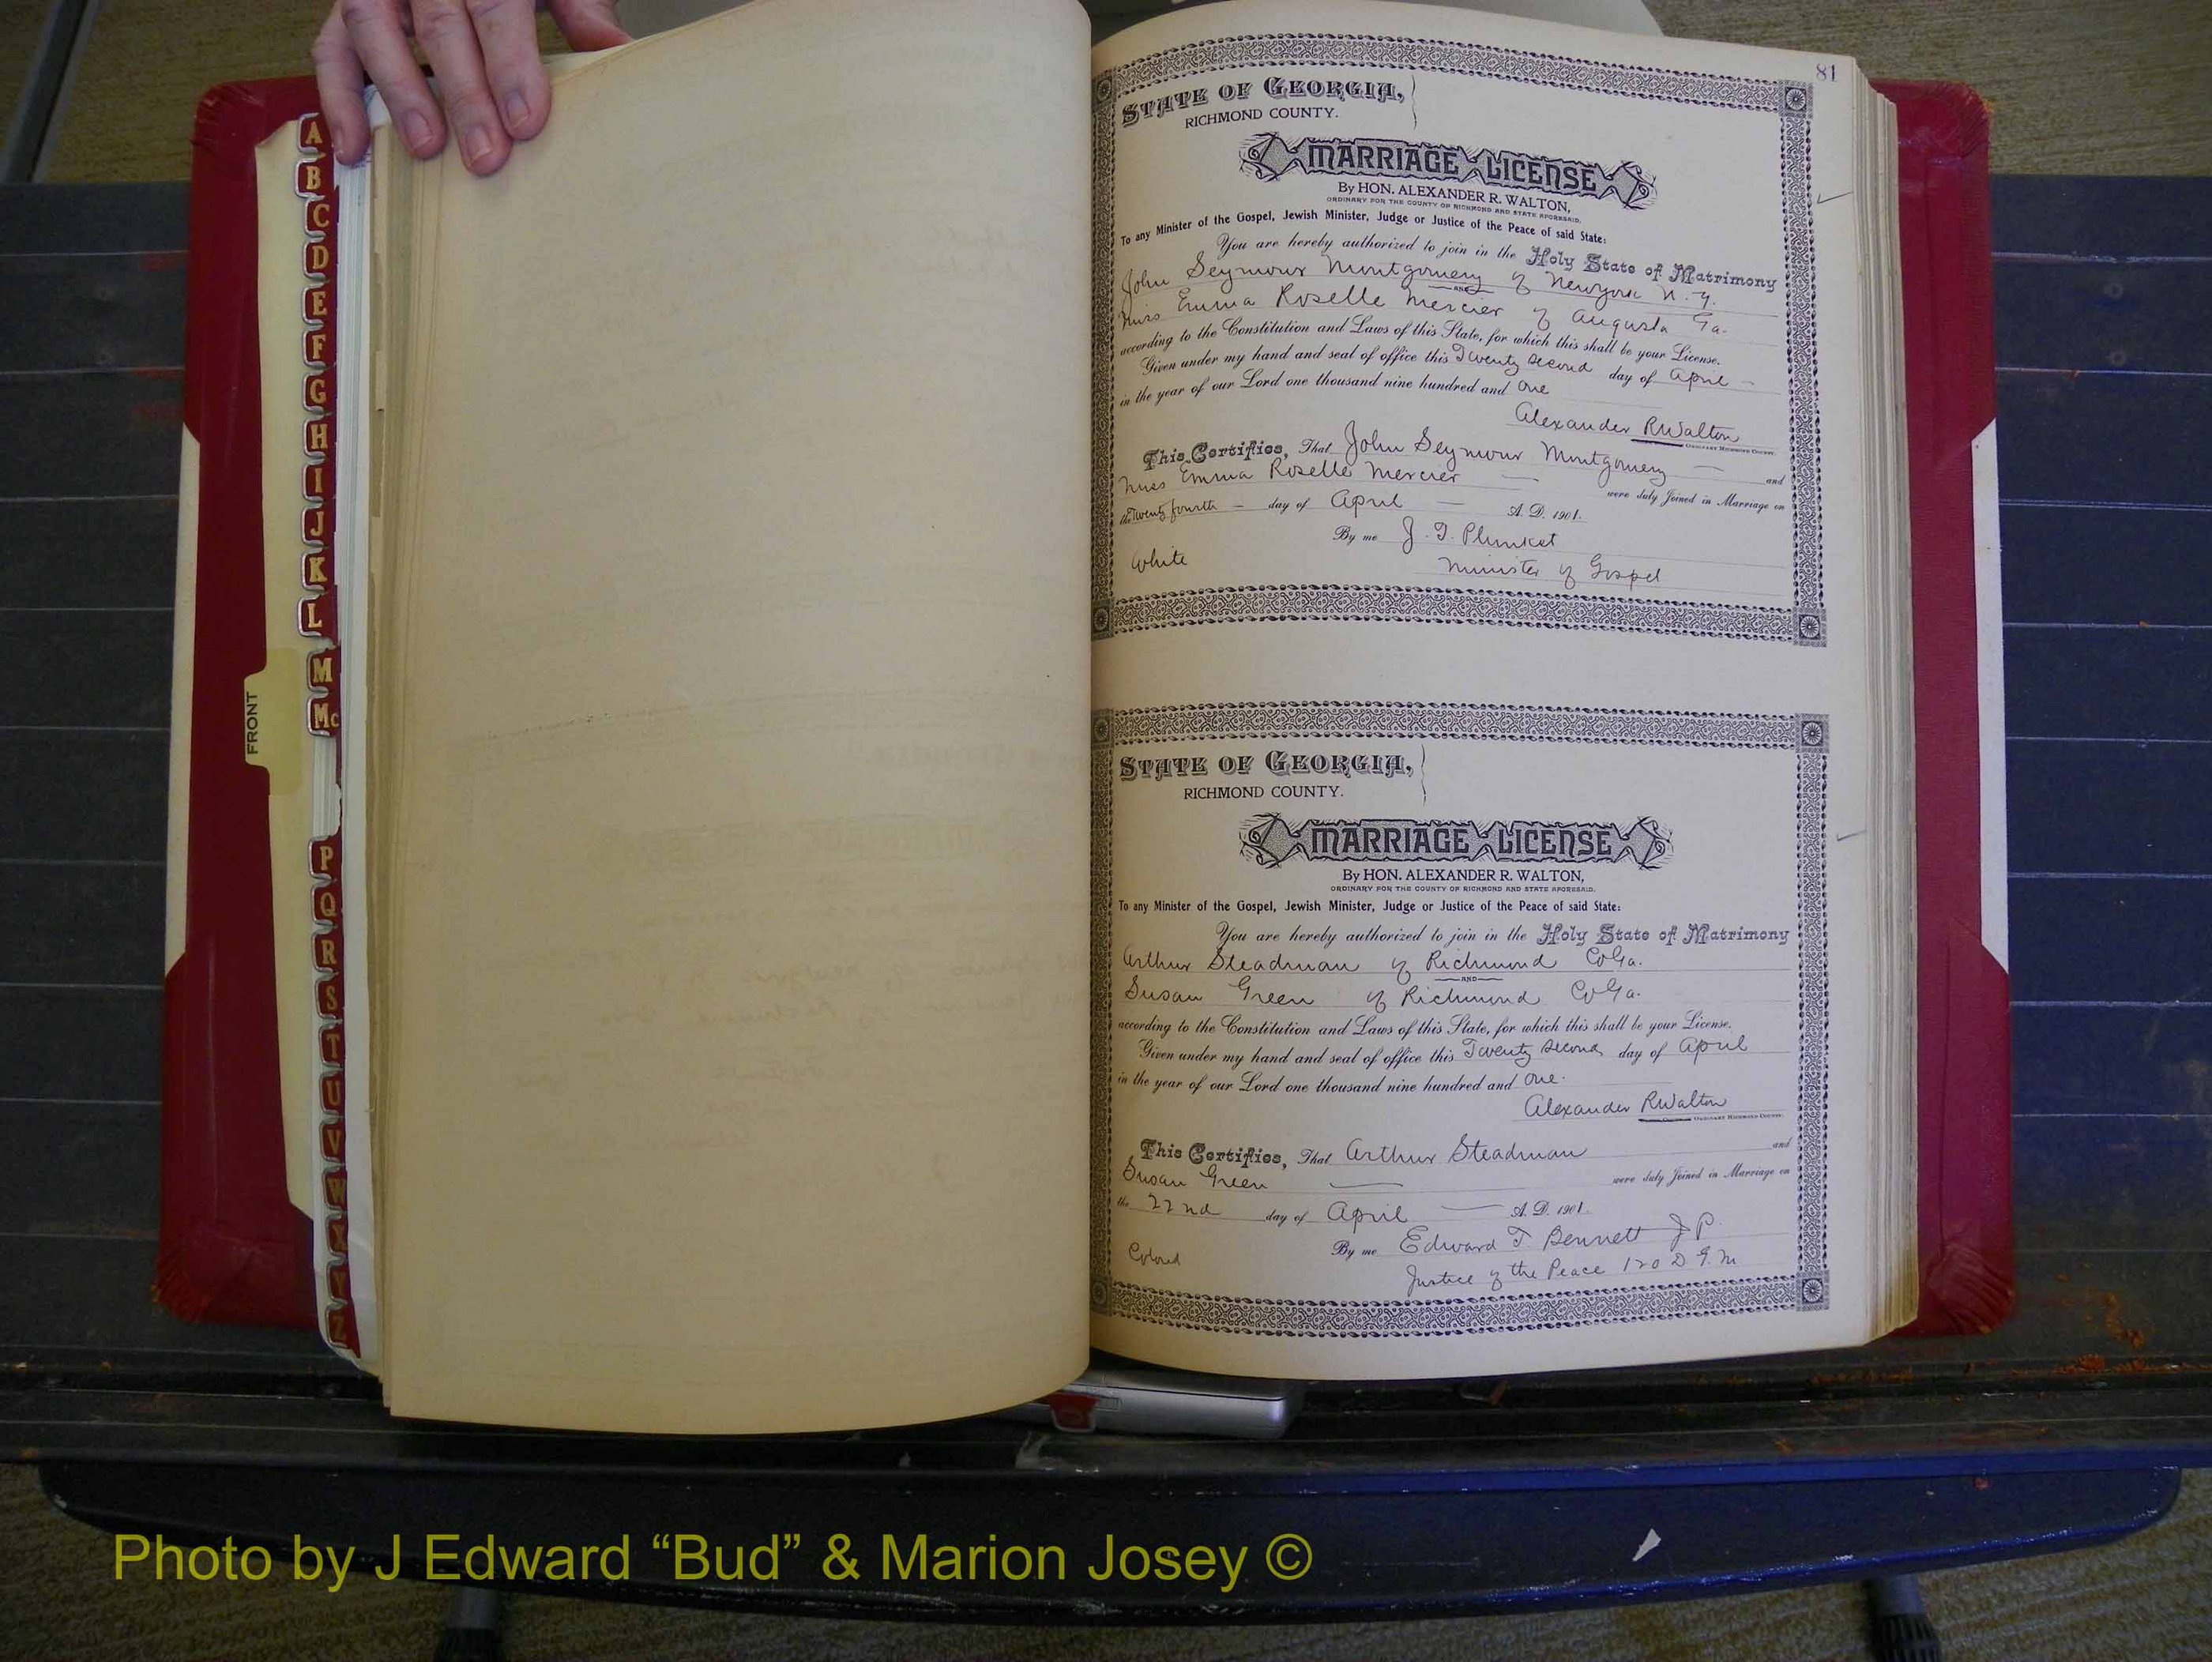 A
B
C
D
E
F
G
H
I
J
K
L
M
Mc
P
Q
R
S
T
U
V
W
X
Y
Z
FRONT
81
STATE OF GEORGIA,
RICHMOND COUNTY.
MARRIAGE LICENSE
By HON. ALEXANDER R. WALTON,
ORDINARY FOR THE COUNTY OF RICHMOND AND STATE AFORESAID.
To any Minister of the Gospel, Jewish Minister, Judge or Justice of the Peace of said State:
You are hereby authorized to join in the Holy State of Matrimony
John Seymour Montgomery of New York N.Y.
AND
Miss Emma Roselle Mercier of Augusta Ga.
according to the Constitution and Laws of this State, for which this shall be your License.
Given under my hand and seal of office this Twenty Second day of April
in the year of our Lord one thousand nine hundred and One
Alexander R Walton
ORDINARY RICHMOND COUNTY.
This Certifies, That John Seymour Montgomery and
Miss Emma Roselle Mercier were duly Joined in Marriage on
the Twenty fourth day of April A. D. 1901.
By me J. T. Plunket
White Minister of Gospel
STATE OF GEORGIA,
RICHMOND COUNTY.
MARRIAGE LICENSE
By HON. ALEXANDER R. WALTON,
ORDINARY FOR THE COUNTY OF RICHMOND AND STATE AFORESAID.
To any Minister of the Gospel, Jewish Minister, Judge or Justice of the Peace of said State:
You are hereby authorized to join in the Holy State of Matrimony
Arthur Steadman of Richmond Co Ga.
AND
Susan Green of Richmond Co Ga.
according to the Constitution and Laws of this State, for which this shall be your License.
Given under my hand and seal of office this Twenty Second day of April
in the year of our Lord one thousand nine hundred and One.
Alexander R Walton
ORDINARY RICHMOND COUNTY.
This Certifies, That Arthur Steadman and
Susan Green were duly Joined in Marriage on
the 22nd day of April A. D. 1901.
By me Edward T. Bennett J P.
Colored Justice of the Peace 120 D G. M
Photo by J Edward “Bud” & Marion Josey ©